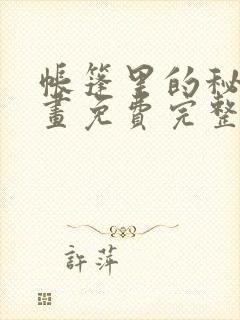 帳篷里的秘
畫免費完整
許萍